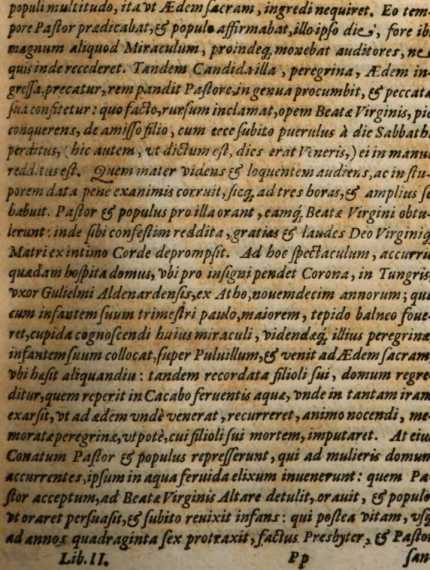 populi multitudo, ita vt Ædem sacram, ingredi nequiret. Eo tem-
pore Pastor prædicabat, & populo affirmabat, illo ipso die, fore ibi
magnum aliquod Miraculum, proindeq, monebat auditores, ne
quis inde recederet. Tandem Candida illa, peregrina, Ædem in-
gressa, precatur, rem pandit Pastore, in genua procumbit, & peccata
sua confitetur: quo facto, rursum inclamat, opem Beatæ Virginis, pie
conquerens, de amisso filio, cum ecce subito puerulus à die Sabbathi
perditus, (hic autem, vt dictum est, dies erat Veneris,) ei in manu
redditus est. Quem mater videns & loquentem audiens, ac in stu-
porem data pene exanimis corruit, sicq, ad tres horas, & amplius se
habuit. Pastor & populus pro illa orant, eamq, Beatæ Virgini obtu-
lerunt: inde sibi confestim reddita, gratias & laudes Deo Virginiq
Matri ex intimo Corde deprompsit. Ad hoc spectaculum, accurrit
quadam hospita domus, vbi pro insigni pendet Corona, in Tungris,
vxor Gulielmi Aldenardensis, ex Atho, nouemdecim annorum; quæ
cum infantem suum trimestri paulo, maiorem, tepido balneo foue-
ret, cupida cognoscendi huius miraculi, videndæq, illius peregrinæ
infantem suum collocat, super Puluillum, & venit ad Ædem sacram,
vbi hæsit aliquandiu: tandem recordata filioli sui, domum regre-
ditur, quem reperit in Cacabo feruentis aquæ, vnde in tantam iram
exarsit, vt ad ædem vndè venerat, recurreret, animo nocendi, me-
moratæ peregrinæ, vtpotè, cui filioli sui mortem, imputaret. At eius
Conatum Pastor & populus represserunt, qui ad mulieris domum
accurrentes, ipsum in aqua feruida elixum inuenerunt: quem Pa-
stor acceptum, ad Beatæ Virginis Altare detulit, orauit, & populo
vt oraret persuasit, & subito reuixit infans: qui postea vitam, vsq
ad annos quadraginta sex protraxit, factus Presbyter, & Pastor
Lib. II. Pp san-